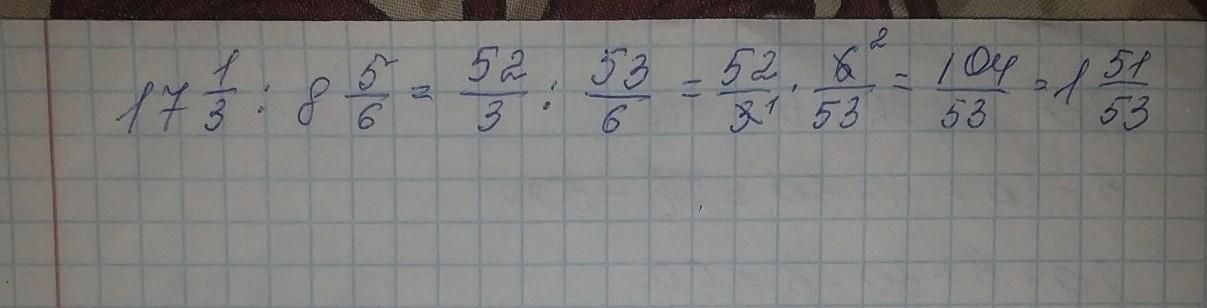 17 1/3 : 8 5/6 = 52/3 : 53/6 = 52/3¹ · 6²/53 = 104/53 = 1 51/53